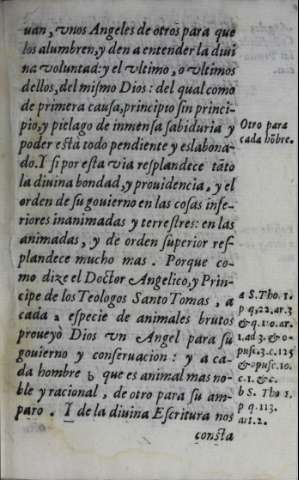 uan, vnos Angeles de otros para que
los alumbren, y den a entender la diui
na voluntad: y el vltimo, o vltimos
dellos, del mismo Dios: del qual como
de primera causa, principio sin princi-
pio, y pielago de inmensa sabiduria y
poder està todo pendiente y eslabona-
do. Y si por esta via resplandece tãto
la diuina bondad, y prouidencia, y el
orden de su gouierno en las cosas infe-
riores inanimadas y terrestres: en las
animadas, y de orden superior res-
plandece mucho mas. Porque co-
mo dize el Doctor Angelico, y Prin-
cipe de los Teologos Santo Tomas, a
cada a especie de animales brutos
proueyò Dios vn Angel para su
gouierno y conseruacion: y a ca-
da hombre b que es animal mas no-
ble y racional, de otro para su am-
paro. Y de la diuina Escritura nos
consta
Otro para
cada hõbre.
a S. Tho. 1.
p q. 22. ar. 3
& q. 110. ar.
1. ad 3. & o-
pusc. 3. c. 125
& opusc. 10.
c. 1. & c.
b S. Tho 1.
p q. 113.
art. 2.